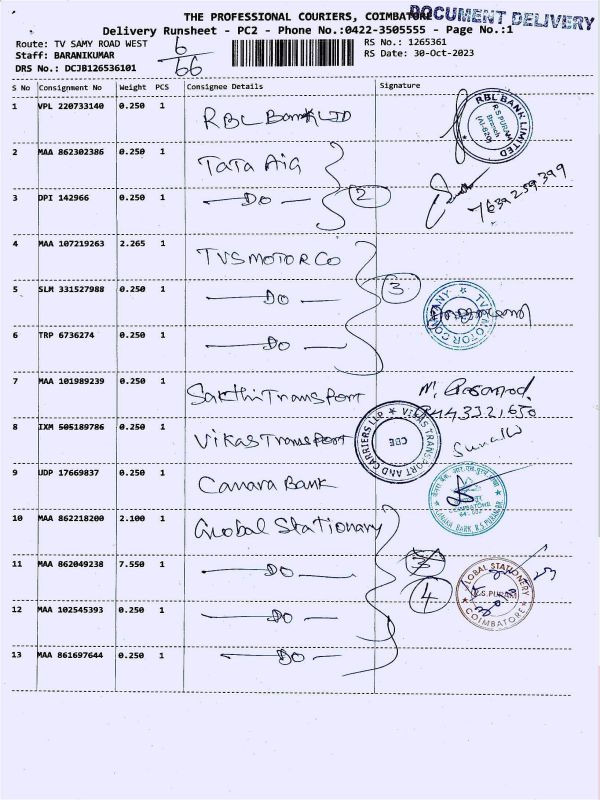 THE PROFESSIONAL COURIERS, COIMBATORE
DOCUMENT DELIVERY
Delivery Runsheet - PC2 - Phone No.:0422-3505555 - Page No.:1
Route: TV SAMY ROAD WEST
RS No.: 1265361
Staff: BARANIKUMAR
RS Date: 30-Oct-2023
DRS No.: DCJB126536101
6/66
S No Consignment No Weight PCS Consignee Details Signature
1 VPL 220733140 0.250 1 RBL Bank LTD
RBL BANK LIMITED
R S PURAM
Branch
2 MAA 862302386 0.250 1 Tata Aig
3 DPI 142966 0.250 1 DO 2
7639259399
4 MAA 107219263 2.265 1 TVS MOTOR CO
5 SLM 331527988 0.250 1 DO 3
TVS MOTOR COMPANY
6 TRP 6736274 0.250 1 DO
7 MAA 101989239 0.250 1 Sakthi Transport
8 IXM 505189786 0.250 1 Vikas Transport
VIKAS TRANSPORT AND CARRIERS LLP
CBE
9 UDP 17669837 0.250 1 Canara Bank
CANARA BANK, R.S.PURAM BR.
COIMBATORE
10 MAA 862218200 2.100 1 Global Stationary
11 MAA 862049238 7.550 1 DO 3
4
GLOBAL STATIONERY
R.S.PURAM
COIMBATORE
12 MAA 102545393 0.250 1 DO
13 MAA 861697644 0.250 1 DO